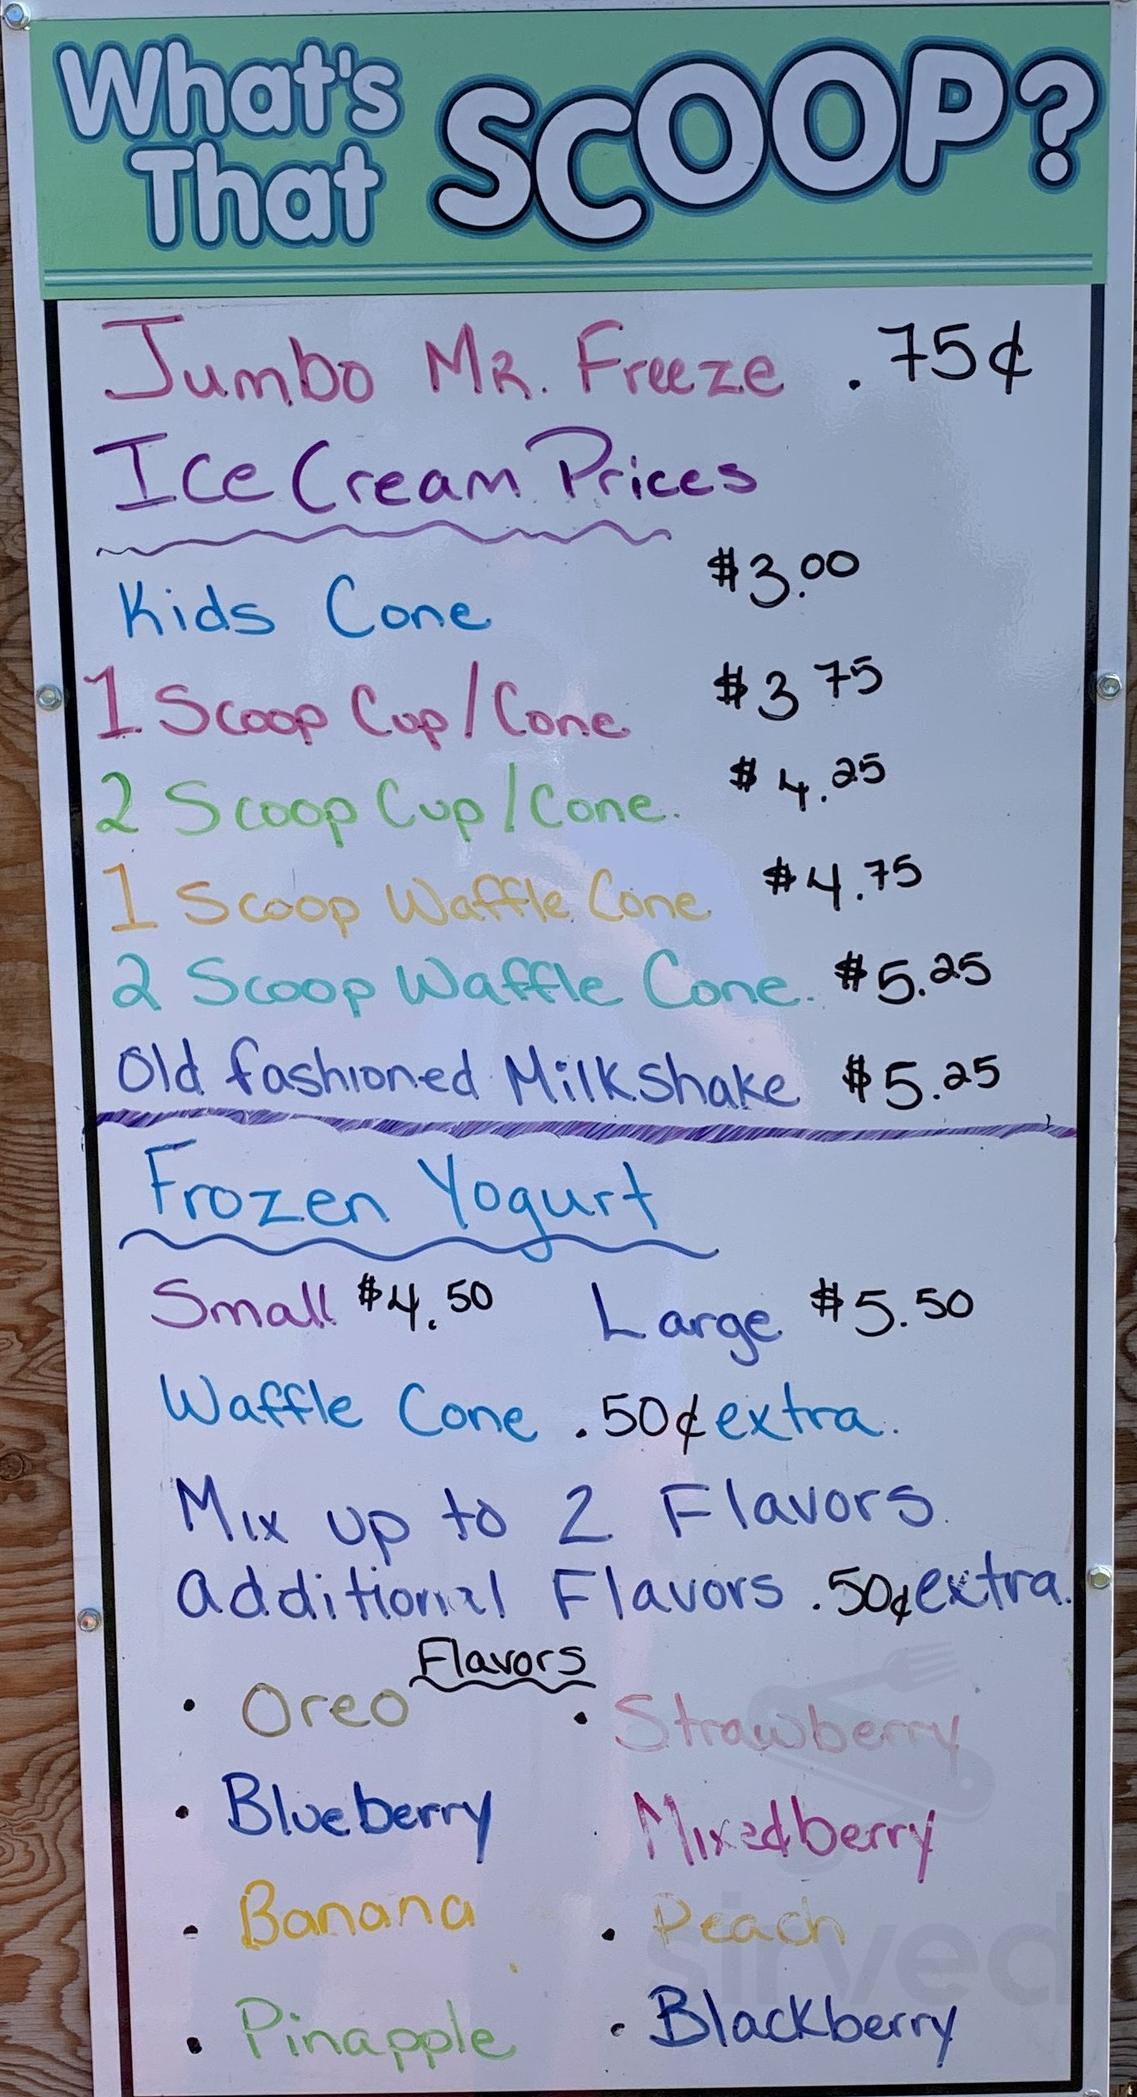 What's
That SCOOP?
Jumbo MR. Freeze .75¢
Ice Cream Prices
Kids Cone $3.00
1 Scoop Cup/Cone $3 75
2 Scoop Cup/Cone. $4.25
1 Scoop Waffle Cone $4.75
2 Scoop Waffle Cone. $5.25
Old fashioned Milkshake $5.25
Frozen Yogurt
Small $4.50 Large $5.50
Waffle Cone .50¢ extra.
Mix up to 2 Flavors.
additional Flavors .50¢ extra.
Flavors
• Oreo • Strawberry
• Blueberry • Mixedberry
• Banana • Peach
• Pinapple • Blackberry
sirved